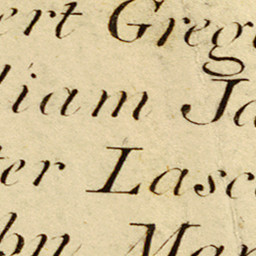 ert Grego
liam Ja
ter Lasce
hn Man